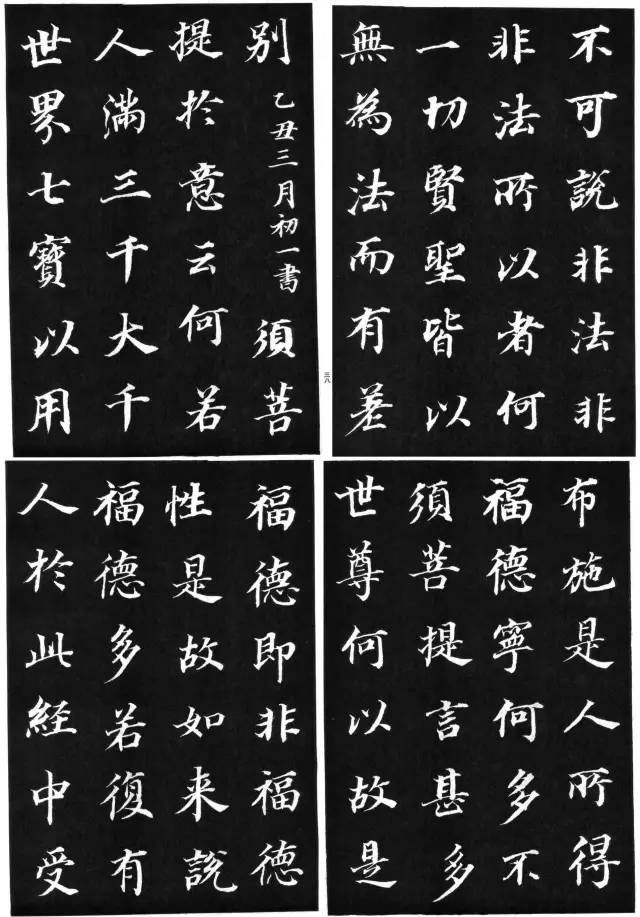 不可說非法非
非法所以者何
一切賢聖皆以
無為法而有差
三八
别 乙丑三月初一書 須菩
提於意云何若
人滿三千大千
世界七寶以用
布施是人所得
福德寧何多不
須菩提言甚多
世尊何以故是
福德即非福德
性是故如来說
福德多若復有
人於此経中受